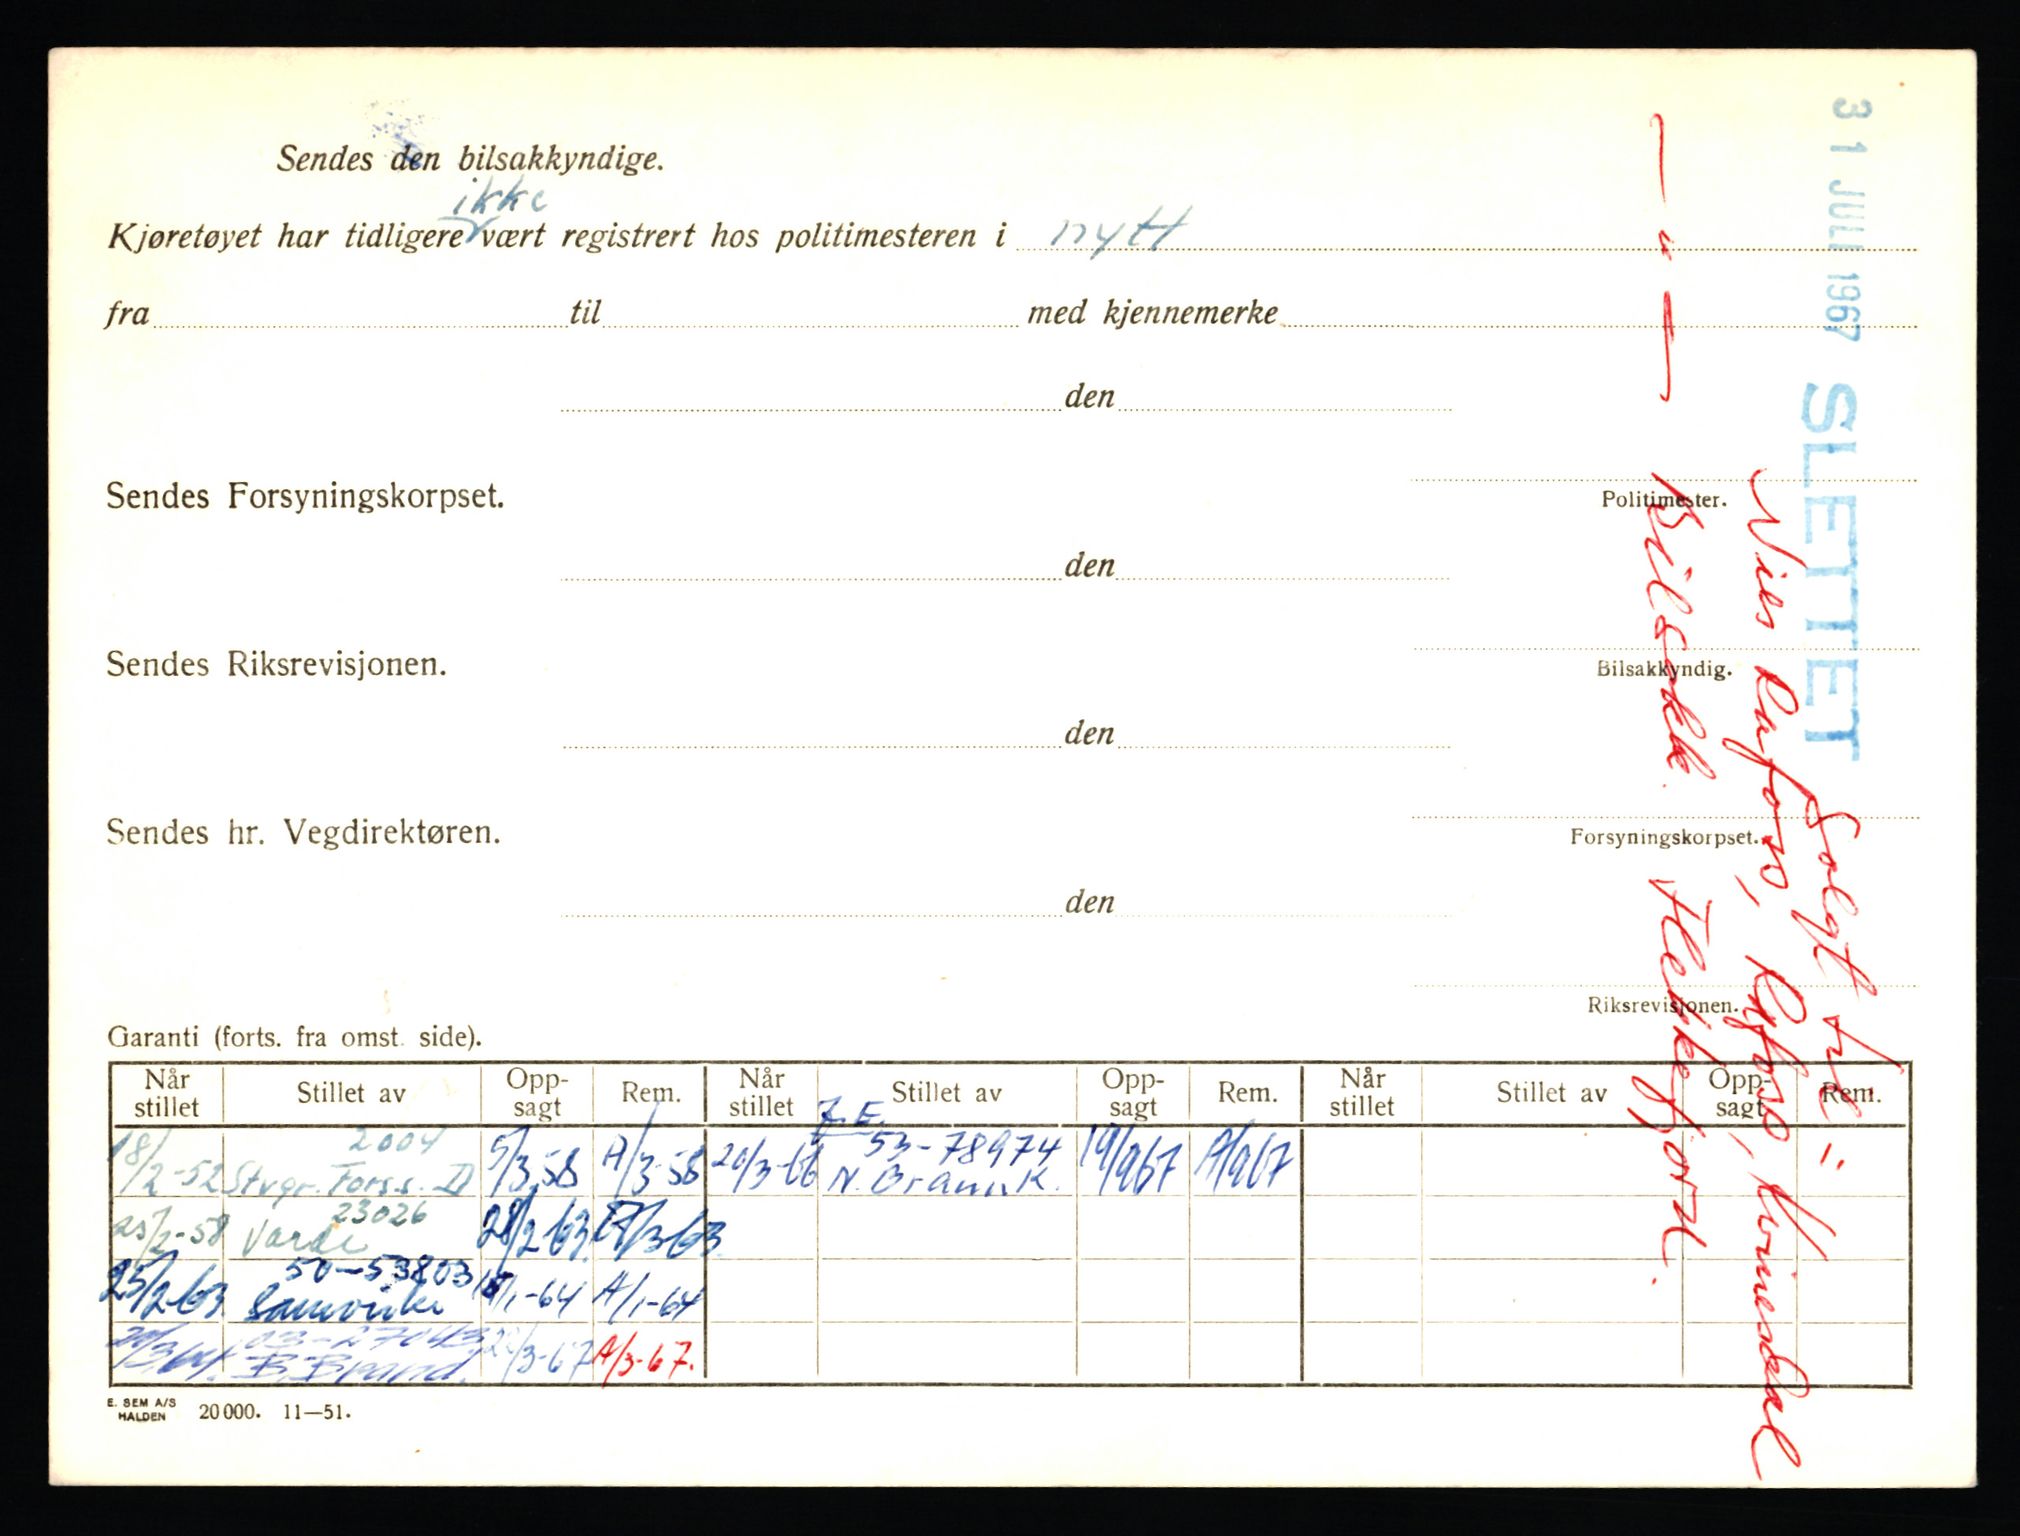 Sendes den bilsakkyndige.
ikke
Kjøretøyet har tidligere vært registrert hos politimesteren i nytt
fra til med kjennemerke
den
Politimester.
Sendes Forsyningskorpset.
den
Bilsakkyndig.
Sendes Riksrevisjonen.
den
Forsyningskorpset.
Sendes hr. Vegdirektøren.
den
Riksrevisjonen.
Garanti (forts. fra omst. side).
Når stillet Stillet av Opp-sagt Rem. Når stillet Stillet av Opp-sagt Rem. Når stillet Stillet av Opp-sagt Rem.
2004
18/2-52 Stvgr. Forss. D 5/3 58 A/3-58
23026
25/2-58 Varde 28/2 63 /3-63
50-53803
25/2 63 Samvirke /1-64 A/1-64
03-27043
/3 64. B. Brand. 20/3-67 A/3-67.
53-78974
20/3-66 N. Brannk. 19/967 A/967
E. SEM A/S
HALDEN 20000. 11—51.
31 JULI 1967 SLETTET
Solgt til =
Nils Rafoss, Rafoss, Kvinesdal
— " — Bilsakk. Flekkefjord.